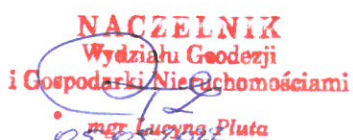 NACZELNIK
Wydziału Geodezji
i Gospodarki Nieruchomościami
mgr Lucyna Pluta